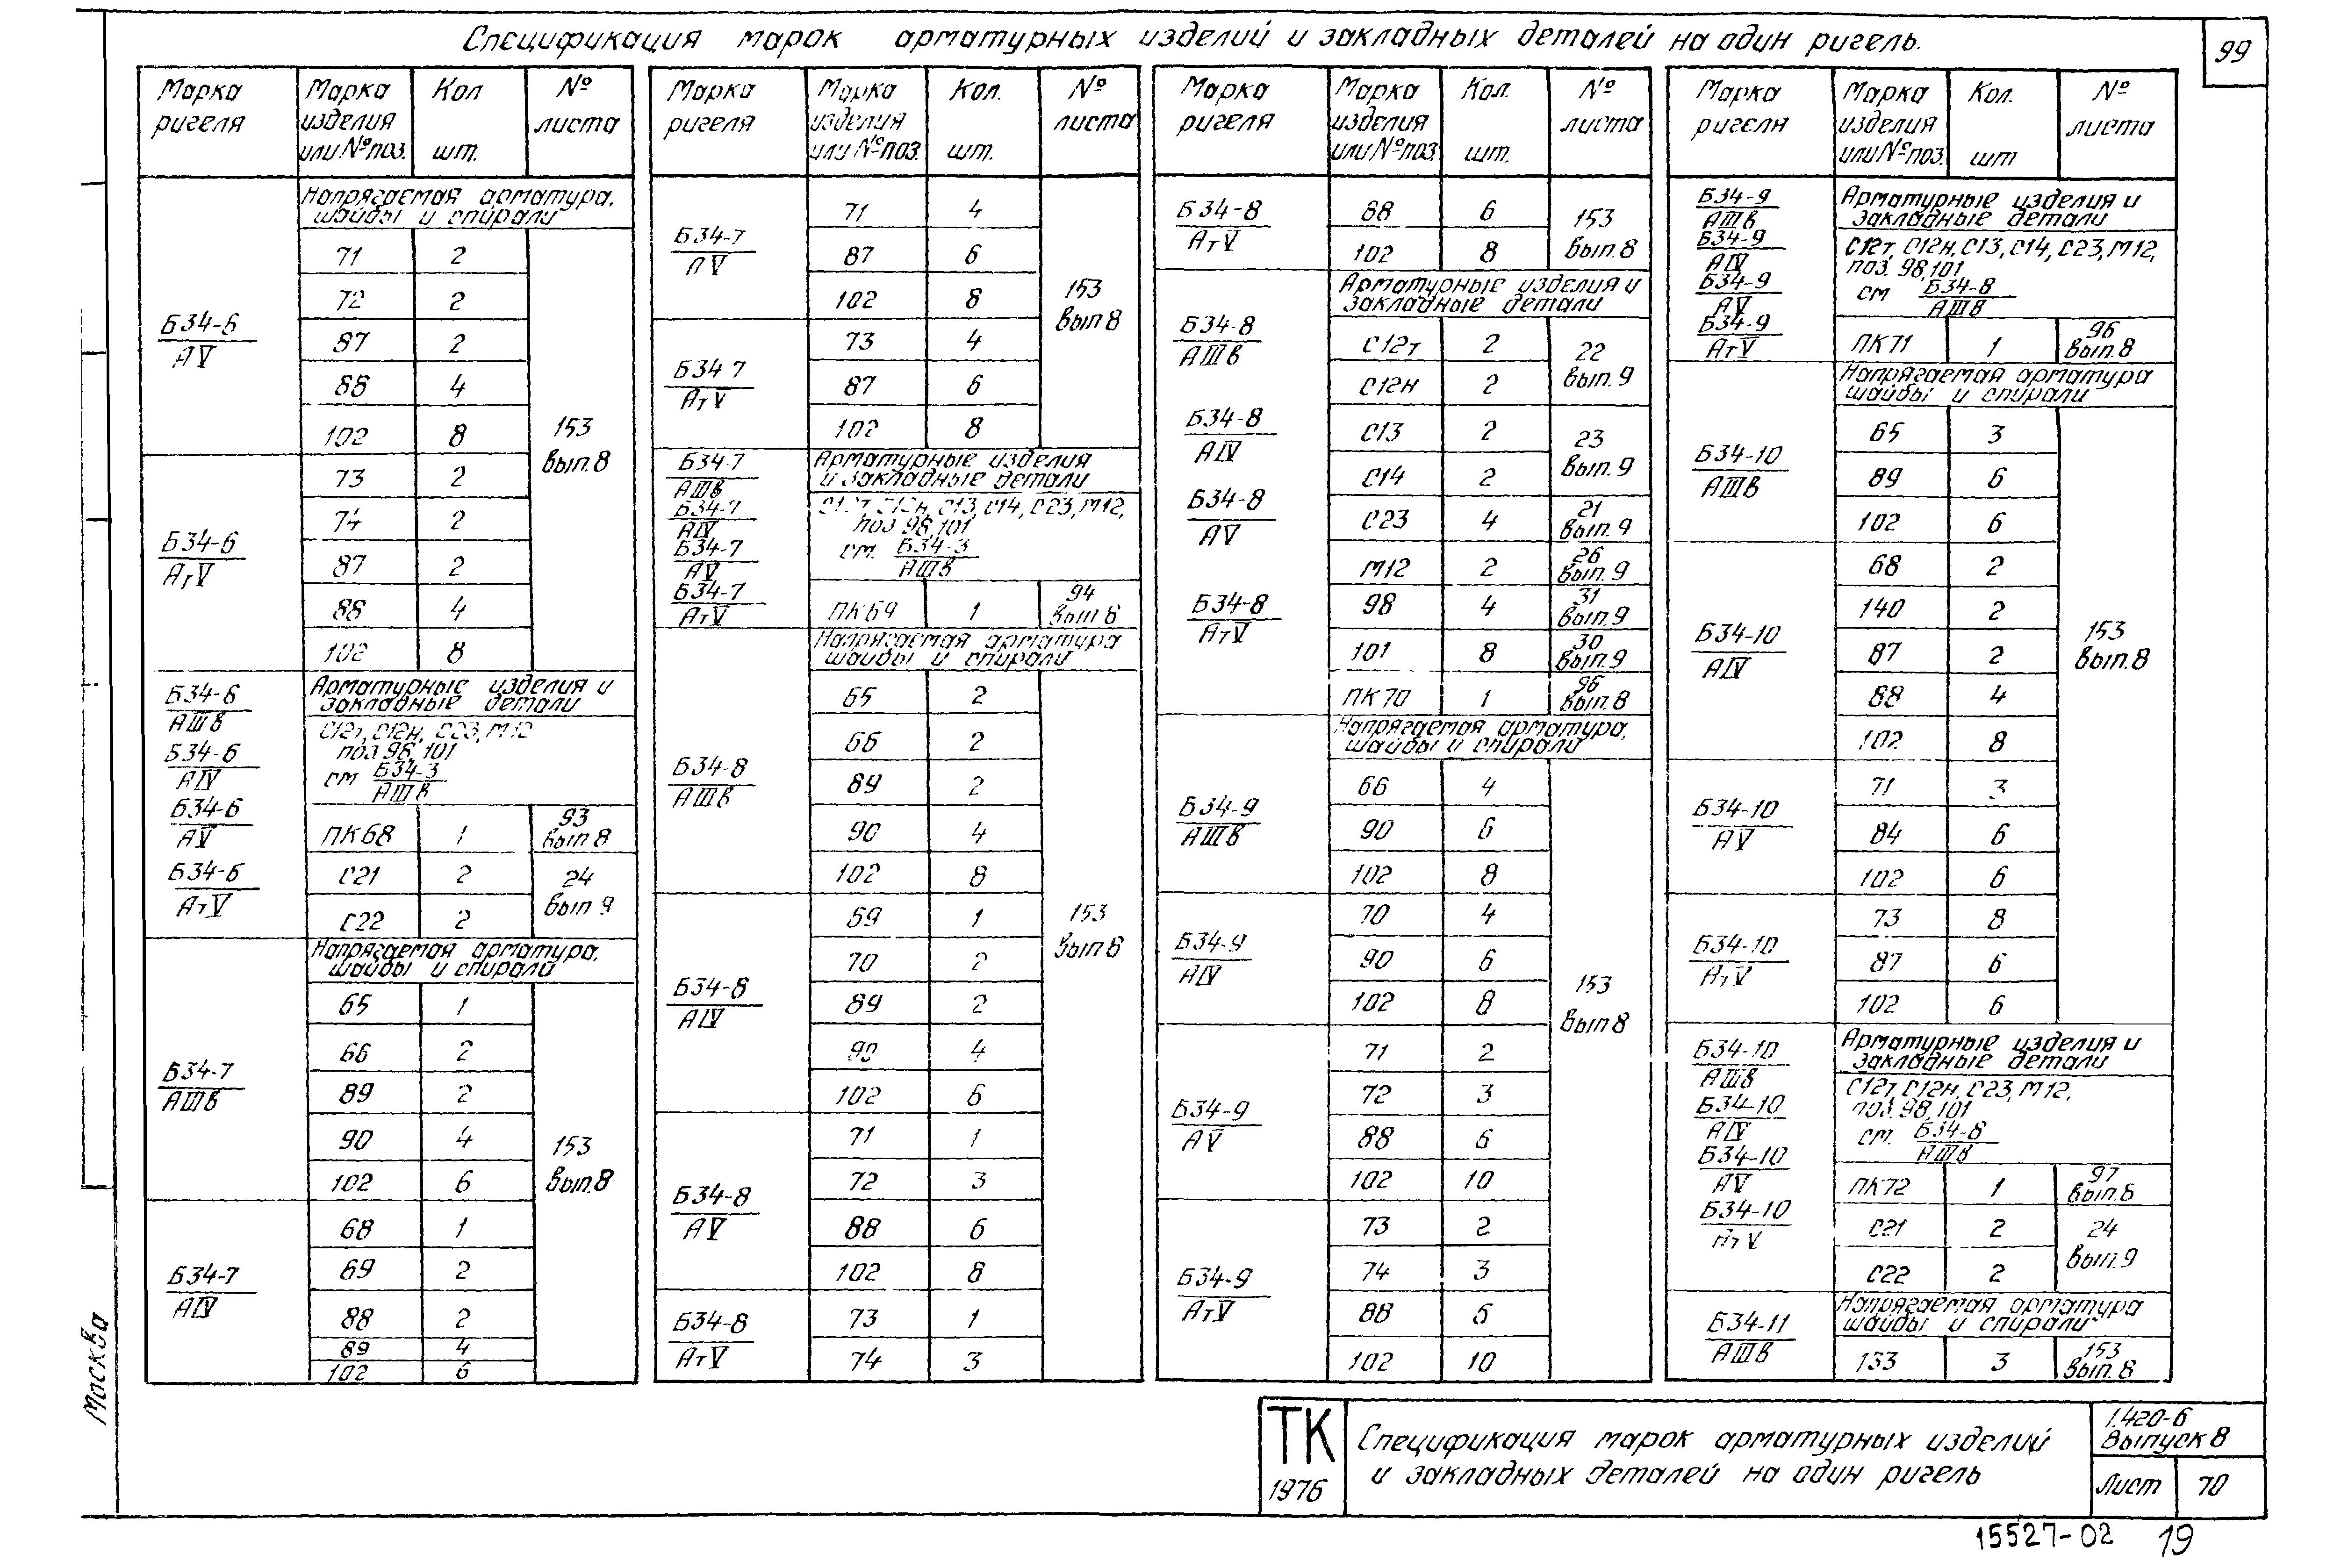 Спецификация марок арматурных изделий и закладных деталей на один ригель.
99
Марка ригеля | Марка изделия или № поз. | Кол шт. | № листа
Б34-6 / АV
Напрягаемая арматура, шайбы и спирали
71 2
72 2
87 2
88 4
102 8
153 вып.8
Б34-6 / АтV
73 2
74 2
87 2
88 4
102 8
Б34-6 / АIIIв
Б34-6 / АIV
Б34-6 / АV
Б34-6 / АтV
Арматурные изделия и закладные детали
С12т, С12н, С23, М12
поз 98, 101
см Б34-3 / АIIIв
ПК68 1 93 вып 8
С21 2 24 вып 9
С22 2
Б34-7 / АIIIв
Напрягаемая арматура, шайбы и спирали
65 1
66 2
89 2
90 4
102 6
153 вып.8
Б34-7 / АIV
68 1
69 2
88 2
89 4
102 6
Марка ригеля | Марка изделия или № поз. | Кол. шт. | № листа
Б34-7 / АV
71 4
87 6
102 8
153 вып 8
Б34 7 / АтV
73 4
87 6
102 8
Б34-7 / АIIIв
Б34-7 / АIV
Б34-7 / АV
Б34-7 / АтV
Арматурные изделия и закладные детали
С12т, С12н, С13, С14, С23, М12,
поз 98, 101
см. Б34-3 / АIIIв
ПК69 1 94 вып 8
Напрягаемая арматура шайбы и спирали
Б34-8 / АIIIв
65 2
66 2
89 2
90 4
102 8
153 вып 8
Б34-8 / АIV
69 1
70 2
89 2
90 4
102 6
Б34-8 / АV
71 1
72 3
88 6
102 8
Б34-8 / АтV
73 1
74 3
Марка ригеля | Марка изделия или № поз. | Кол. шт. | № листа
Б34-8 / АтV
88 6
102 8
153 вып.8
Б34-8 / АIIIв
Б34-8 / АIV
Б34-8 / АV
Б34-8 / АтV
Арматурные изделия и закладные детали
С12т 2 22 вып. 9
С12н 2
С13 2 23 вып. 9
С14 2
С23 4 21 вып. 9
М12 2 26 вып. 9
98 4 31 вып. 9
101 8 30 вып. 9
ПК70 1 96 вып. 8
Напрягаемая арматура, шайбы и спирали
Б34-9 / АIIIв
66 4
90 6
102 8
153 вып 8
Б34-9 / АIV
70 4
90 6
102 8
Б34-9 / АV
71 2
72 3
88 6
102 10
Б34-9 / АтV
73 2
74 3
88 6
102 10
Марка ригеля | Марка изделия или № поз. | Кол. шт | № листа
Б34-9 / АIIIв
Б34-9 / АIV
Б34-9 / АV
Б34-9 / АтV
Арматурные изделия и закладные детали
С12т, С12н, С13, С14, С23, М12,
поз. 98, 101
см Б34-8 / АIIIв
ПК71 1 96 вып. 8
Напрягаемая арматура шайбы и спирали
Б34-10 / АIIIв
65 3
89 6
102 6
153 вып.8
Б34-10 / АIV
68 2
140 2
87 2
88 4
102 8
Б34-10 / АV
71 3
84 6
102 6
Б34-10 / АтV
73 8
87 6
102 6
Б34-10 / АIIIв
Б34-10 / АIV
Б34-10 / АV
Б34-10 / АтV
Арматурные изделия и закладные детали
С12т, С12н, С23, М12,
поз. 98, 101
см. Б34-8 / АIIIв
ПК72 1 97 вып. 8
С21 2 24 вып. 9
С22 2
Б34-11 / АIIIв
Напрягаемая арматура шайбы и спирали
133 3 153 вып. 8
Москва
ТК
1976
Спецификация марок арматурных изделий
и закладных деталей на один ригель
1.420-6
Выпуск 8
Лист 70
15527-02 19